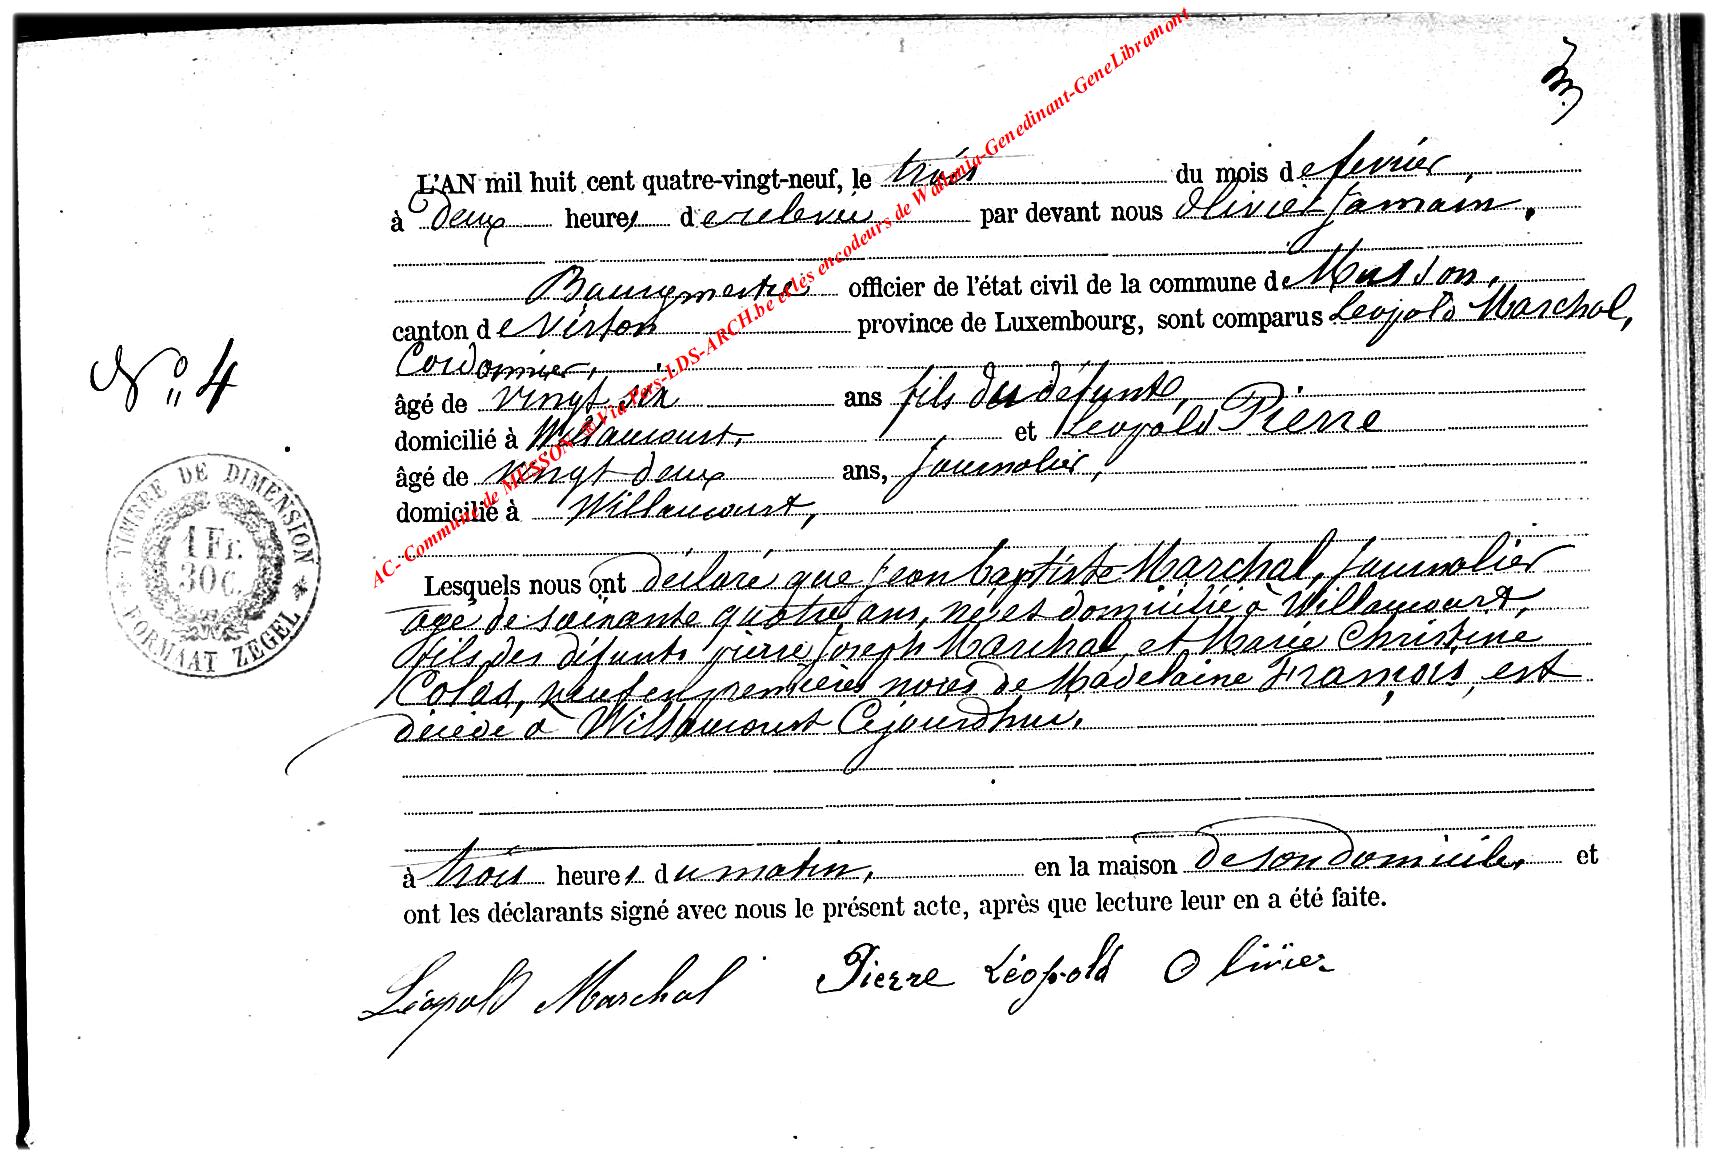 3
L'AN mil huit cent quatre-vingt-neuf, le trois du mois de fevrier,
à deux heures de relevée par devant nous Olivier Jamain,
Bourgmestre officier de l'état civil de la commune de Musson,
canton de Virton province de Luxembourg, sont comparus Léopold Marchal,
Cordonnier,
N° 4
âgé de vingt six ans fils du défunt,
domicilié à Willancourt, et Léopold Pierre
âgé de vingt deux ans, Journalier,
domicilié à Willancourt,
TIMBRE DE DIMENSION
1 Fr.
30 C.
FORMAAT ZEGEL
Lesquels nous ont déclaré que Jean baptiste Marchal, Journalier
age de soixante quatre ans, né et domicilié à Willancourt,
fils des défunts pierre Joseph Marchal et Marie Christine
Colas, veuf en premières noces de Madelaine François, est
décédé à Willancourt Cejourdhui,
à trois heures du matin, en la maison de son domicile, et
ont les déclarants signé avec nous le présent acte, après que lecture leur en a été faite.
Léopold Marchal Pierre Léopold Olivier
AC- Commune de MUSSON ®Via Pers-LDS-ARCH.be et les encodeurs de Wallonia-Genedinant-GeneLibramont